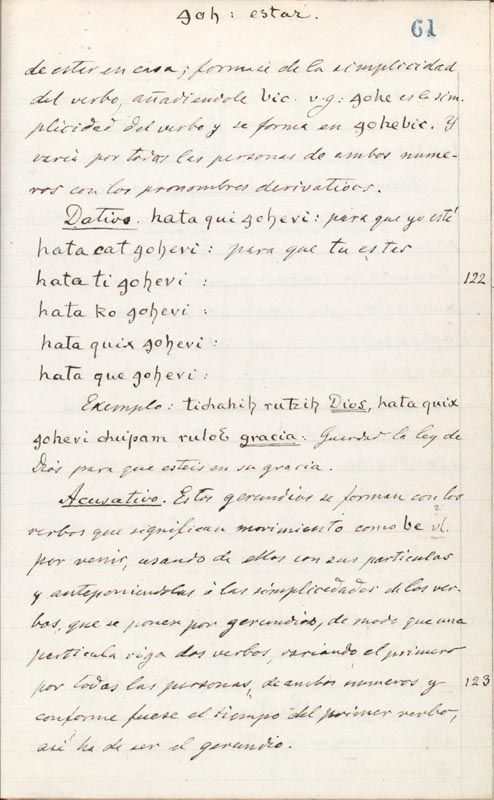 goh : estar.
61
de estar en casa; formase de la simplicidad
del verbo, añadiendole bic. v.g: gohe es la sim-
plicidad del verbo y se forma en gohebic. Y
varia por todas las personas de ambos nume-
ros con los pronombres derivativos.
Dativo. hata qui gohevi: para que yo esté
hata cat gohevi: para que tu estes
hata ti gohevi :
122
hata ko gohevi :
hata quix gohevi :
hata que gohevi :
Exemplo: tichahih rutzih Dios, hata quix
gohevi chupam rutoɛ gracia: Guardad la ley de
Dios para que esteis en su gracia.
Acusativo. Estos gerundios se forman con los
verbos que significan movimiento como be vl.
por venir, usando de ellos con sus particulas
y anteponiendolas á las simplicedades de los ver-
bos, que se ponen por gerundios, de modo que una
particula riga dos verbos, variando el primero
por todas las personas, de ambos numeros y
123
conforme fuese el tiempo del primer verbo,
asi ha de ser el gerundio.